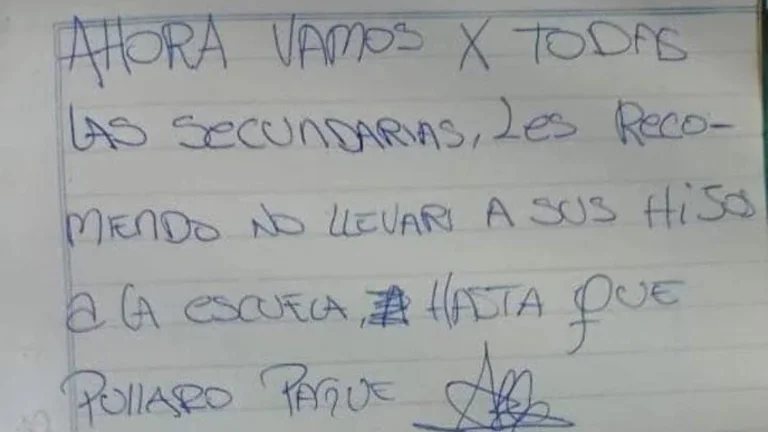 AHORA VAMOS X TODAS
LAS SECUNDARIAS, LES RECO-
MIENDO NO LLEVAR A SUS HIJOS
a LA ESCUELA, HASTA QUE
PULLARO PAGUE